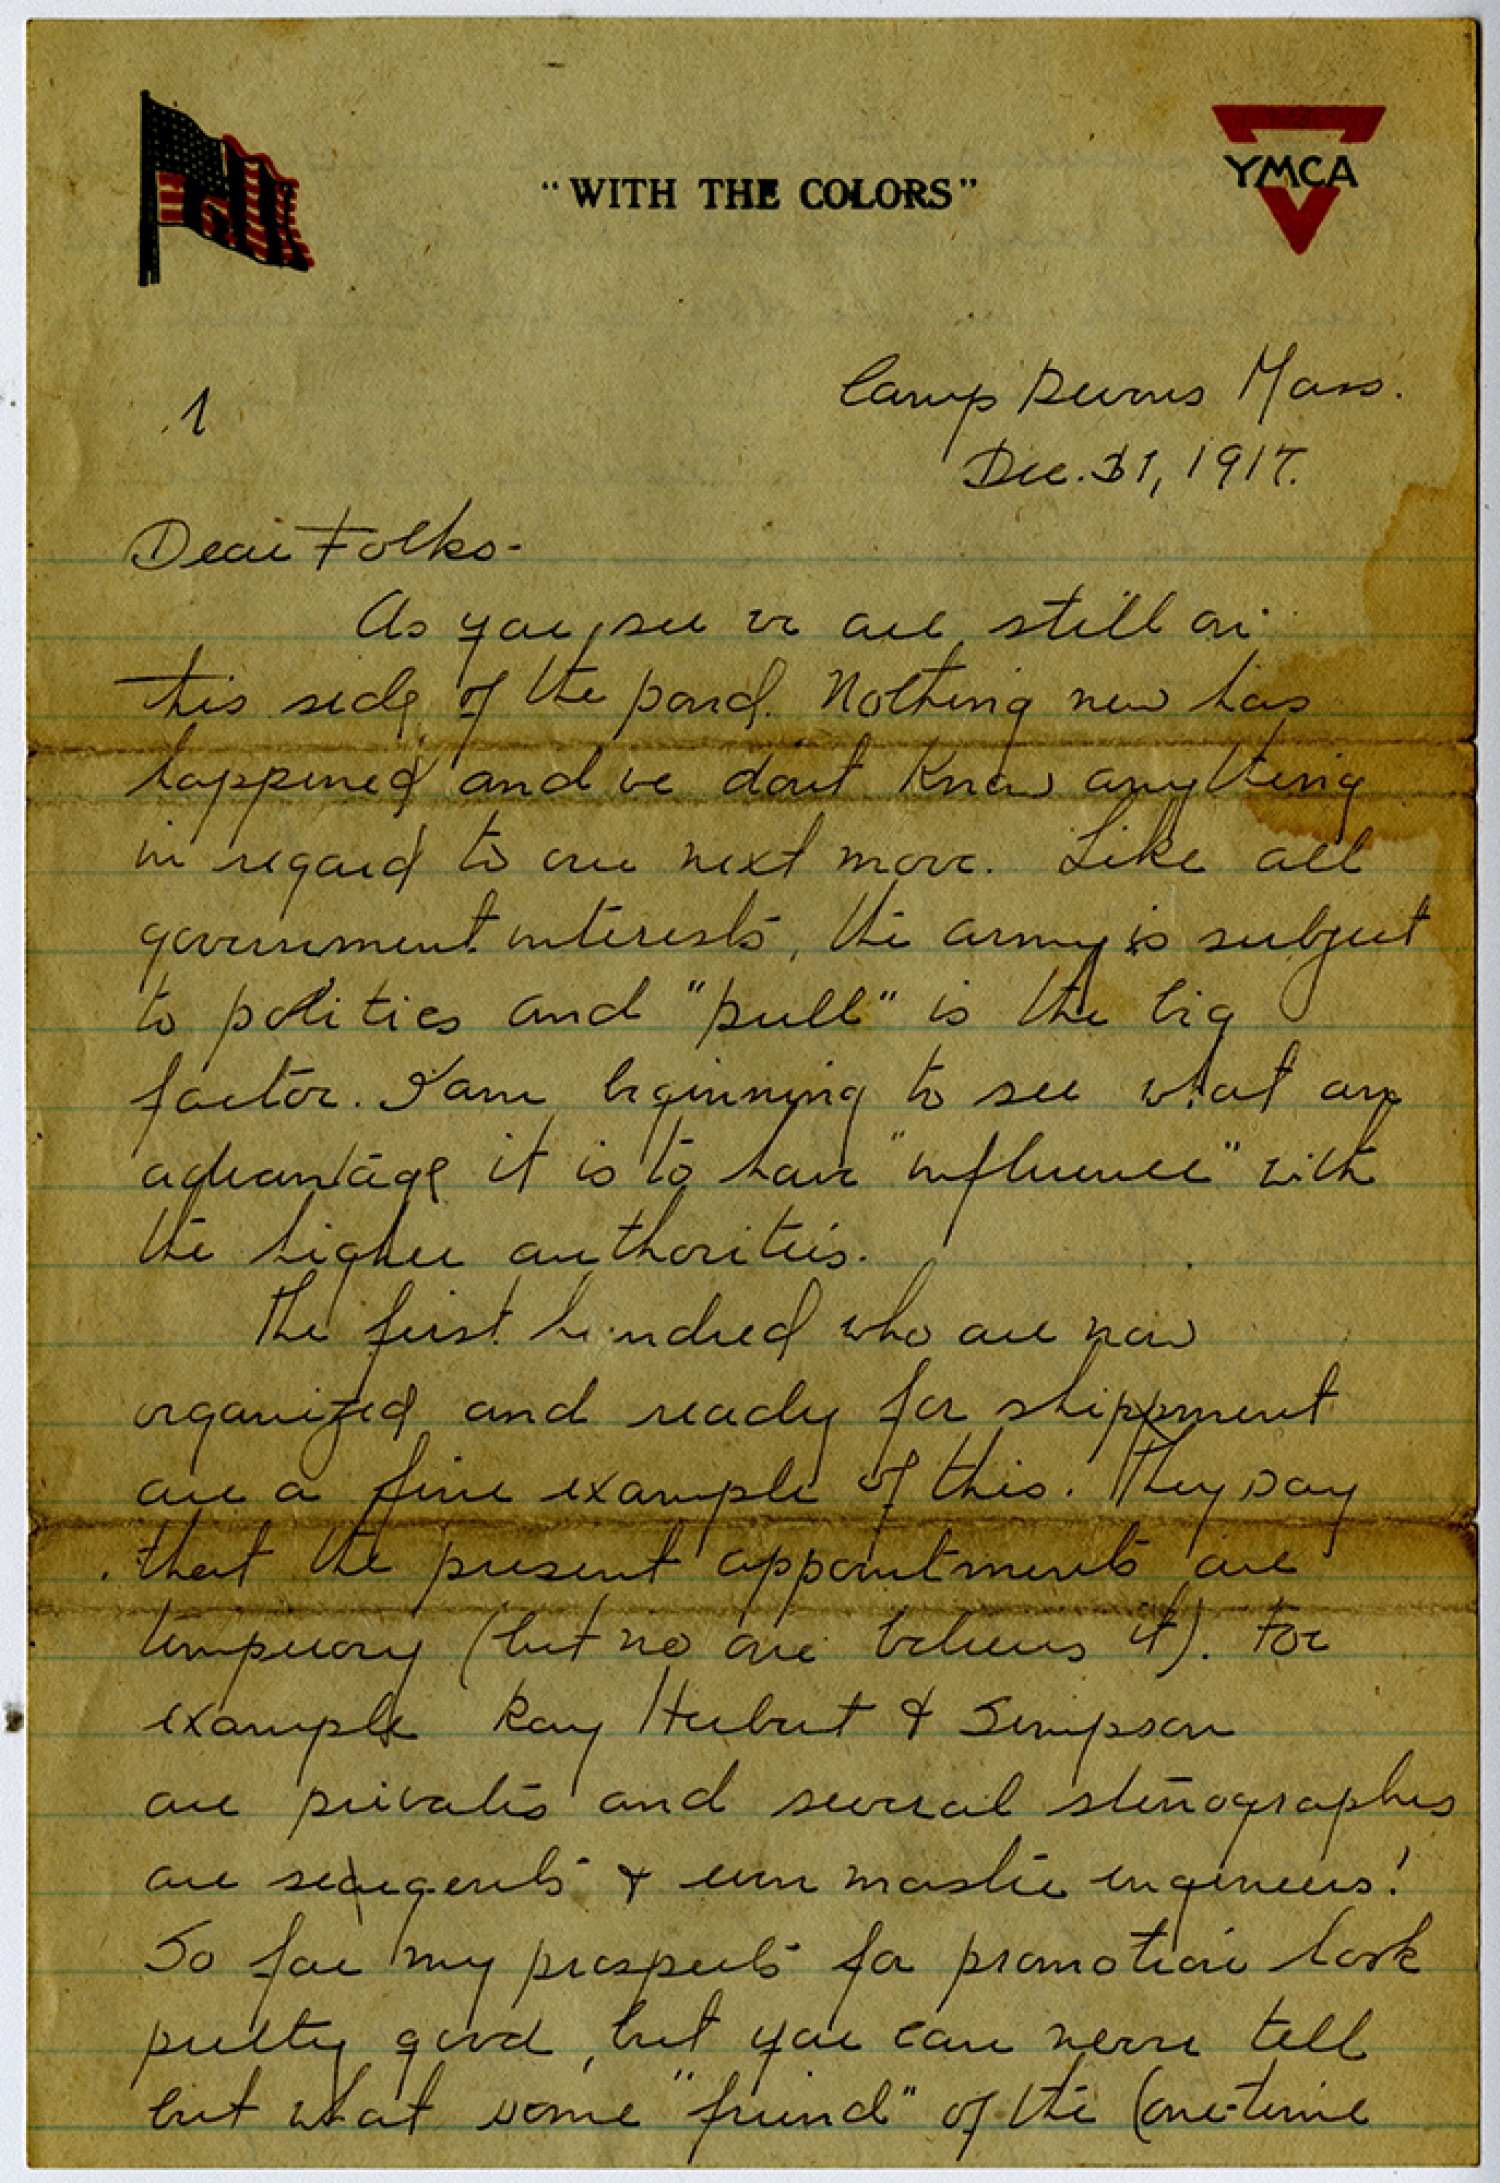 "WITH THE COLORS"
YMCA
Camp Devens Mass.
1
Dec. 31, 1917.
Dear Folks-
As you see we are still on
this side of the pond. Nothing new has
happened and we don't know anything
in regard to our next move. Like all
government interests, the army is subject
to politics and "pull" is the big
factor. I am beginning to see what an
advantage it is to have "influence" with
the higher authorities.
The first hundred who are now
organized and ready for shippment
are a fine example of this. They say
that the present appointments are
tempuory (but no one believes it). For
example Ray Hubert & Simpson
are privates and several stenographers
are sergents & even master engineers!
So far my prospects for promotion look
pretty good, but you can never tell
but what some "friend" of the (one-time